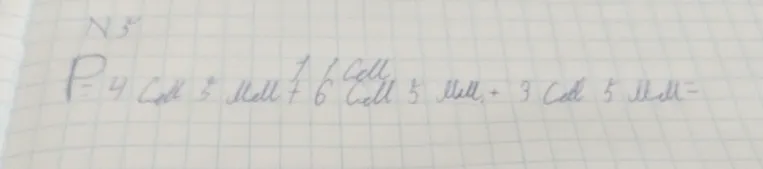 N 5
1 1 см
P= 4 см 5 мм + 6 см 5 мм + 3 см 5 мм =